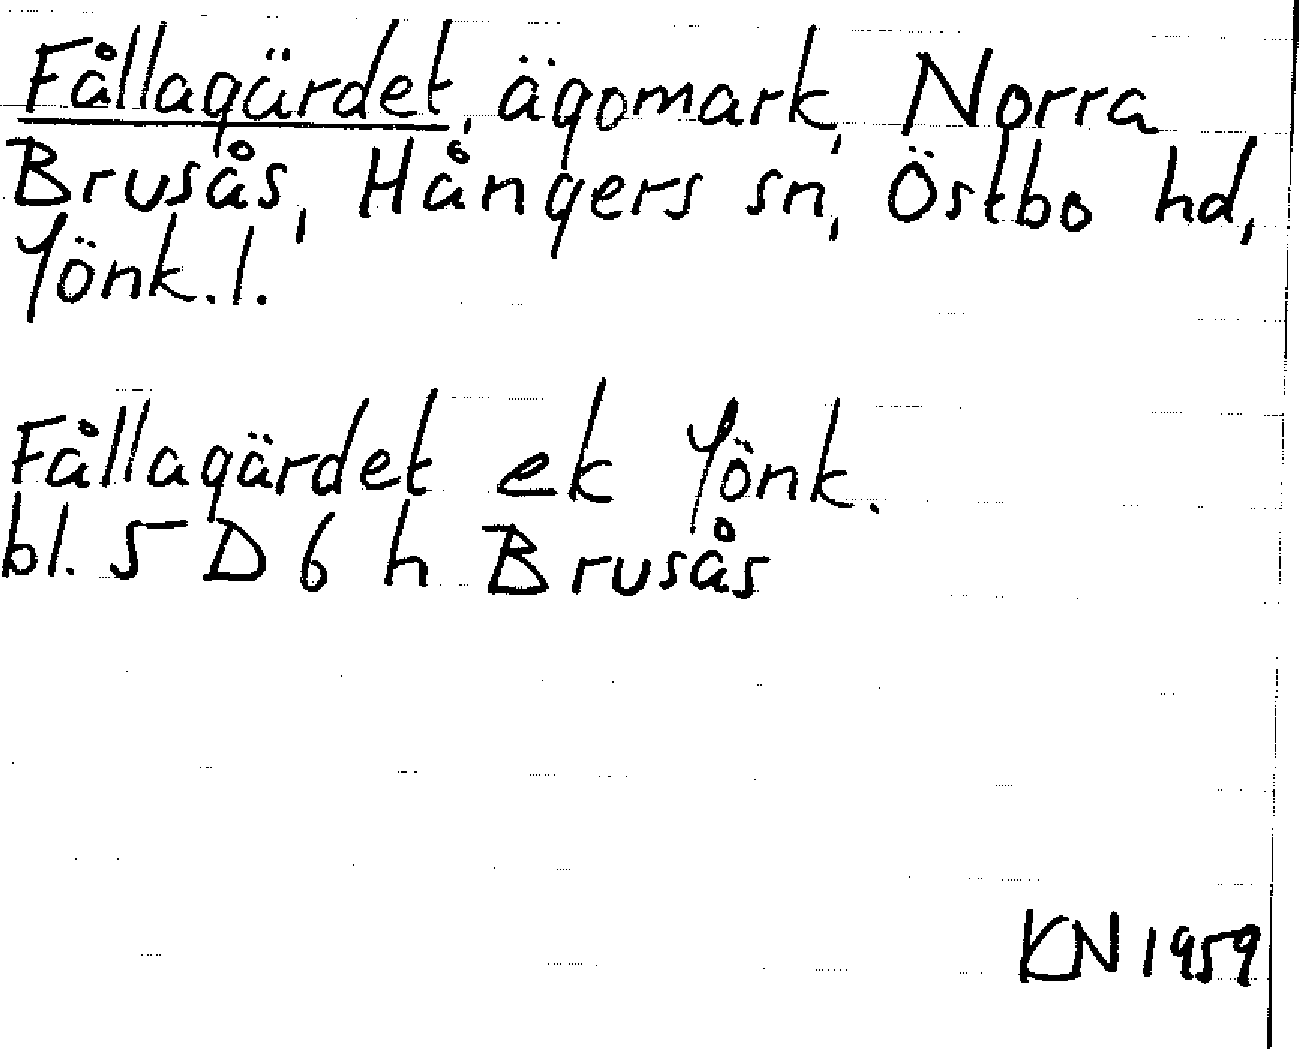 Fållagärdet, ägomark, Norra
Brusås, Hångers sn, Östbo hd,
Jönk.l.
Fållagärdet ek Jönk.
bl. 5 D 6 h Brusås
KN 1959